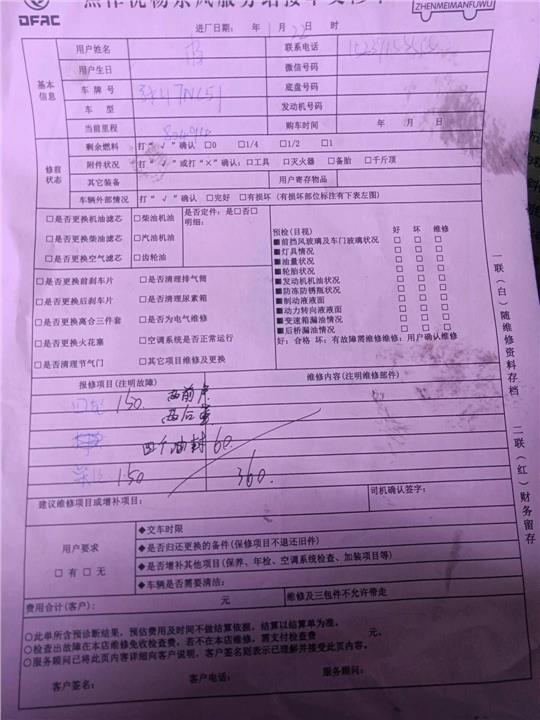 DFAC
ZHENMEIMANFUWU
进厂日期: 年 1月 22日 时
基本信息
用户姓名 杨 联系电话
用户生日 微信号码
车牌号 底盘号码
车型 发动机号码
当前里程 购车时间 年 月 日
修前状态
剩余燃料 打“√”确认 □0 □1/4 □1/2 □1
附件状况 打“√”或打“×”确认:□工具 □灭火器 □备胎 □千斤顶
其它装备 用户寄存物品
车辆外部情况 打“√”确认 □完好 □有损坏(有损坏部位标注有下表左图)
□是否更换机油滤芯 □柴油机油 是否定件:是□否□
明细:
□是否更换柴油滤芯 □汽油机油
□是否更换空气滤芯 □齿轮油
预检(目视) 好 坏 维修
■前挡风玻璃及车门玻璃状况 □ □ □
■灯具情况 □ □ □
■油量状况 □ □ □
■轮胎状况 □ □ □
■发动机机油状况 □ □ □
■防冻防锈瓶状况 □ □ □
■制动液液面 □ □ □
■动力转向液液面 □ □ □
■变速箱漏油情况 □ □ □
■后桥漏油情况 □ □ □
好:合格 坏:有故障需维修维修:用户确认维修
□是否更换前刹车片 □是否清理排气筒
□是否更换后刹车片 □是否清理尿素箱
□是否更换离合三件套 □是否为电气维修
□是否更换火花塞 □空调系统是否正常运行
□是否清理节气门 □其它项目维修及更换
报修项目(注明故障) 维修内容(注明维修部件)
150. 两前
两后
四个油封 60.
150 360.
建议维修项目或增补项目: 司机确认签字:
用户要求
□有 □无
◆交车时限
◆是否归还更换的备件(保修项目不退还旧件)
◆是否增补其他项目(保养、年检、空调系统检查、加装项目等)
◆车辆是否需要清洁:
费用合计(客户): 元 维修及三包件不允许带走
○此单所含预诊断结果,预估费用及时间不做结算依据,结算以结算单为准。
○检查出故障在本店维修免收检查费,若不在本店维修,需支付检查费 元。
○服务顾问已将此页内容详细向客户说明,客户签名则表示已理解并接受此页内容。
客户签名: 客户电话: 服务顾问:
一联(白)随维修资料存档 二联(红)财务留存